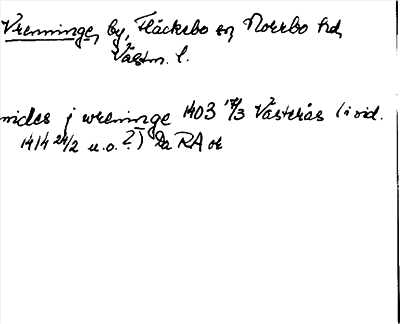 Vrenninge, by, Fläckebo sn, Norrbo hd,
Västm. l.
nides j wreninge 1403 17/3 Västerås (i vid.
1414 24/2 u.o.?) Da RA or